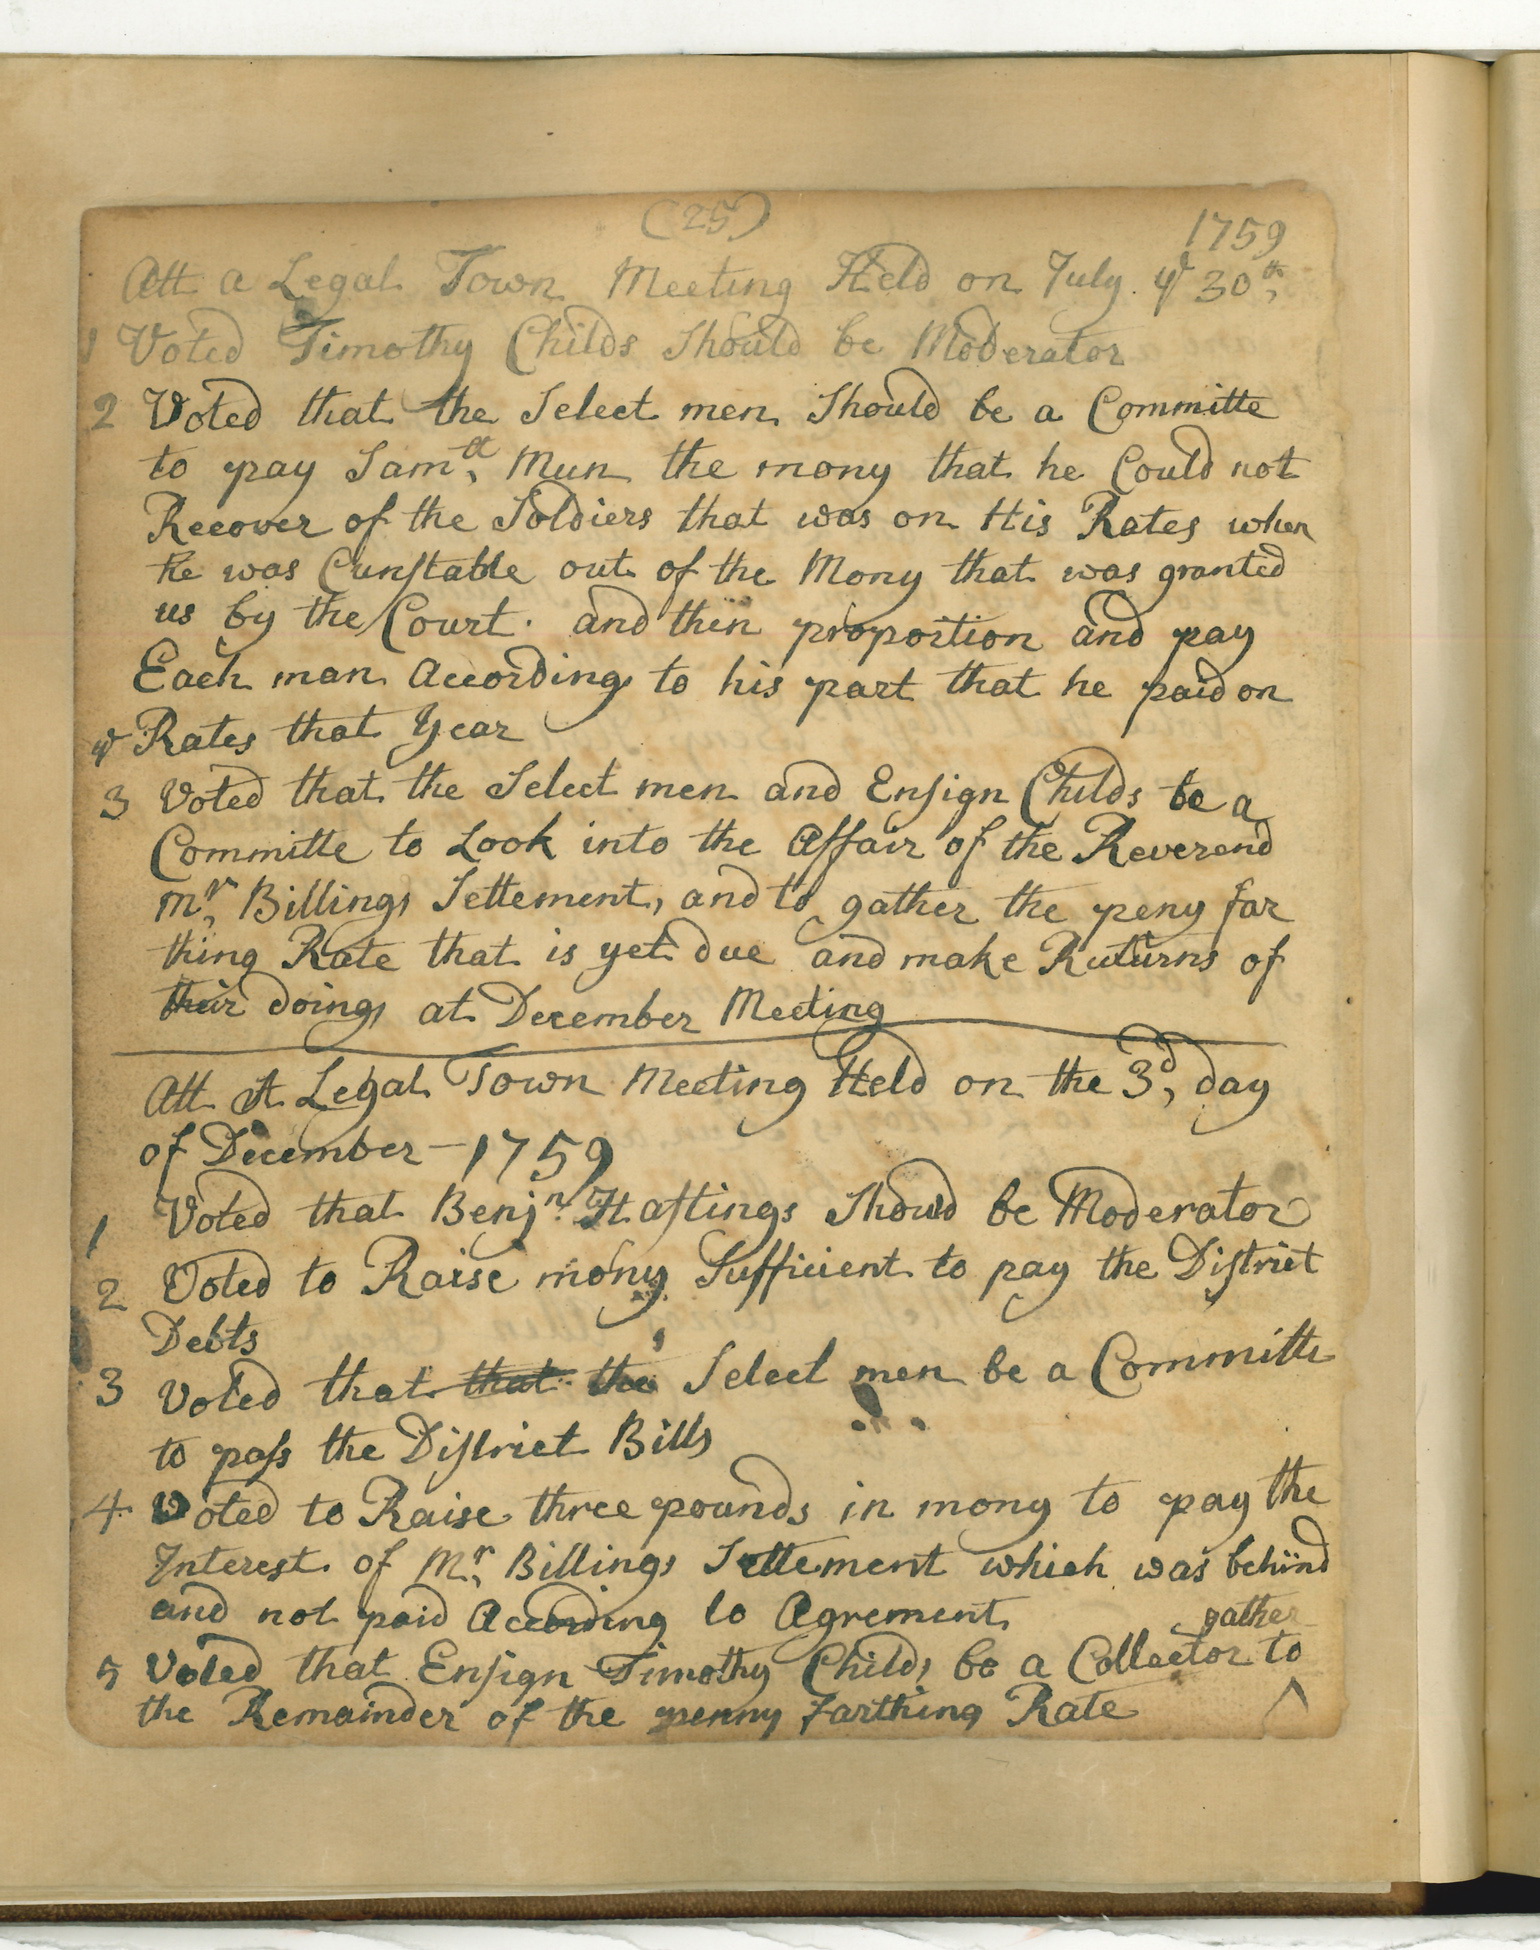 (25)
1759
Att a Legal Town Meeting Held on July ye 30th,
1 Voted Timothy Childs Should be Moderator
2 Voted that the Select men Should be a Committe
to pay Samll, Mun the mony that he Could not
Recover of the Soldiers that was on His Rates when
he was Cunstable out of the Mony that was granted
us by the Court. and then proportion and pay
Each man according to his part that he paid on
ye Rates that Year
3 Voted that the Select men and Ensign Childs be a
Committe to Look into the Affair of the Reverend
Mr, Billings Settement, and to gather the peny far
thing Rate that is yet due and make Ruturns of
their doings at December Meeting
Att A Legal Town Meeting Held on the 3d, day
of December - 1759
1 Voted that Benjn. Hastings Should be Moderator
2 Voted to Raise mony Sufficient to pay the District
Debts
3 Voted that that the Select men be a Committe
to pass the District Bills
4 Voted to Raise three pounds in mony to pay the
Interest of Mr, Billings Settement which was behind
and not paid According to Agrement
gather
5 Voted that Ensign Timothy Childs be a Collector to ^
the Remainder of the penny Farthing Rate